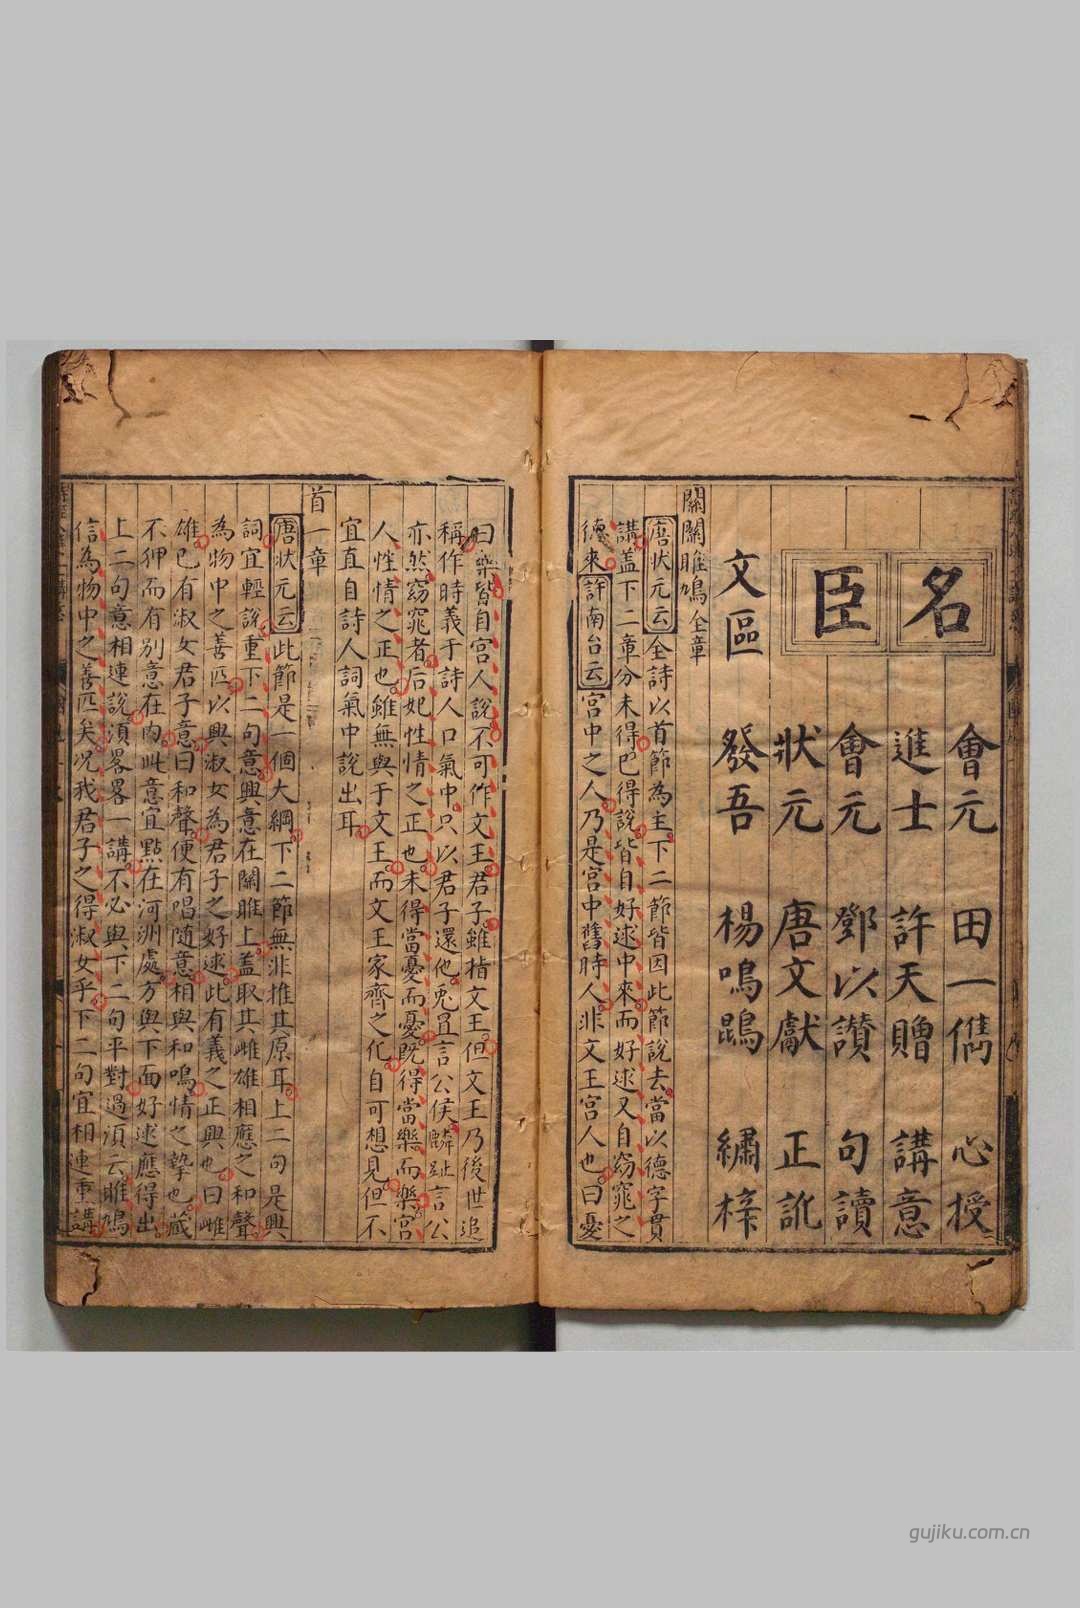 名臣
會元 田一儁 心授
進士 許天贈 講意
會元 鄧以讚 句讀
狀元 唐文獻 正訛
文區 發吾 楊鳴鵾 繡梓
關關雎鳩全章
唐狀元云全詩以首節為主下二節皆因此節說去當以德字貫
講盖下二章分未得巴得說皆自好逑中來而好逑又自窈窕之
德來許南台云宮中之人乃是宮中舊時人非文王宮人也曰憂
曰樂皆自宮人說不可作文王君子雖指文王但文王乃後世追
稱作時義于詩人口氣中只以君子還他兎罝言公侯麟趾言公
亦然窈窕者后妃性情之正也未得當憂而憂既得當樂而樂宮
人性情之正也雖無與于文王而文王家齊之化自可想見但不
宜直自詩人詞氣中說出耳
首一章
唐狀元云此節是一個大綱下二節無非推其原耳上二句是興
詞宜輕說重下二句意興意在關雎上盖取其雌雄相應之和聲
為物中之善匹以興淑女為君子之好逑此有義之正興也曰雌
雄已有淑女君子意曰和聲便有唱隨意相與和鳴情之摯也蔵
不狎而有別意在內此意宜點在河洲處方與下面好逑應得出
上二句意相連說須畧畧一講不必與下二句平對過須云雎鳩
信為物中之善匹矣况我君子之得淑女乎下二句宜相連重講
gujiku.com.cn